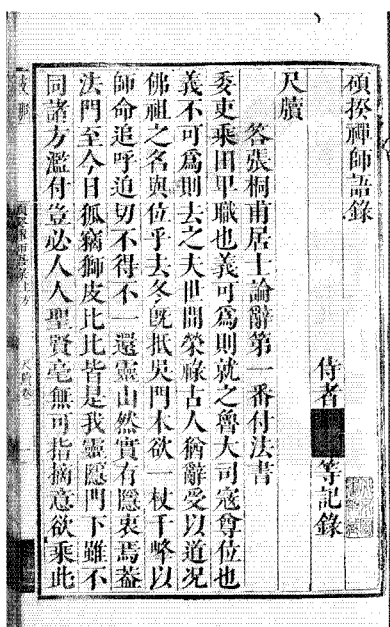 碩揆禪師語錄
侍者 等記錄
尺牘
答張桐甫居士論辭第一番付法書
委吏乘田甲職也義可為則就之魯大司寇尊位也
義不可為則去之夫世間榮祿古人猶辭受以道况
佛祖之名與位乎去冬既抵吳門本欲一杖千峰以
師命追呼迫切不得不一還靈山然實有隱衷焉葢
法門至今日孤竊獅皮比比皆是我靈隱門下雖不
同諸方濫付豈必人人聖賢毫無可指摘意欲乘此